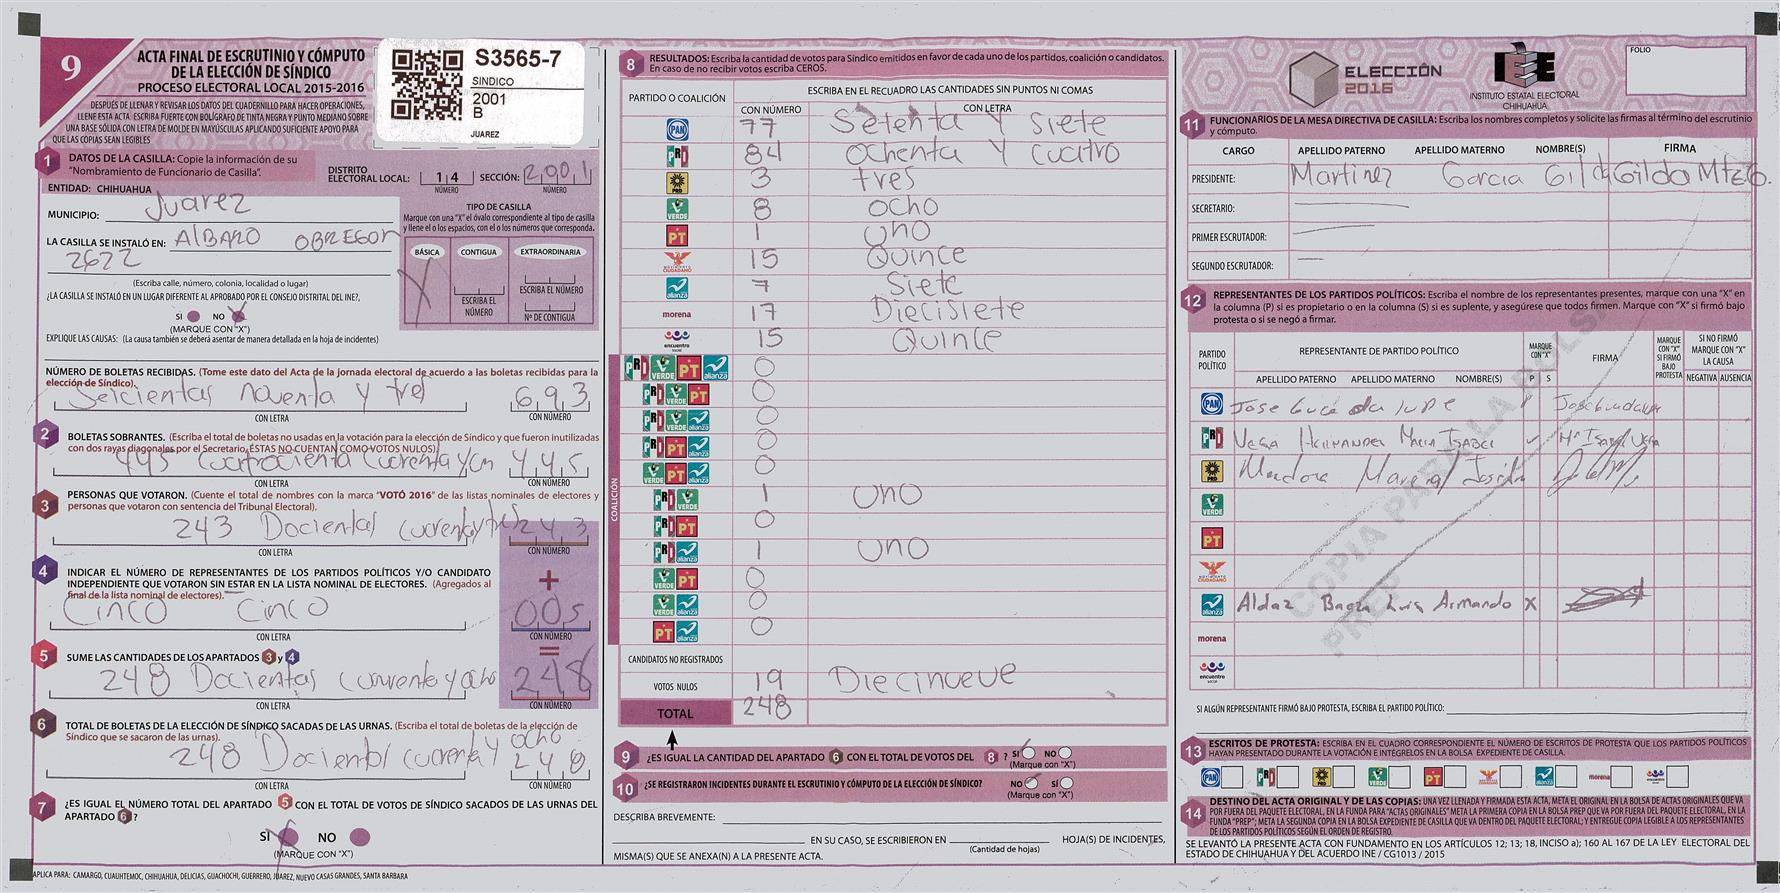 9
ACTA FINAL DE ESCRUTINIO Y CÓMPUTO
DE LA ELECCIÓN DE SÍNDICO
PROCESO ELECTORAL LOCAL 2015-2016
DESPUÉS DE LLENAR Y REVISAR LOS DATOS DEL CUADERNILLO PARA HACER OPERACIONES,
LLENE ESTA ACTA. ESCRIBA FUERTE CON BOLÍGRAFO DE TINTA NEGRA Y PUNTO MEDIANO SOBRE
UNA BASE SÓLIDA CON LETRA DE MOLDE EN MAYÚSCULAS APLICANDO SUFICIENTE APOYO PARA
QUE LAS COPIAS SEAN LEGIBLES
S3565-7
SINDICO
2001
B
JUAREZ
1 DATOS DE LA CASILLA: Copie la información de su
"Nombramiento de Funcionario de Casilla".
DISTRITO ELECTORAL LOCAL: 14 NÚMERO
SECCIÓN: 2001 NÚMERO
ENTIDAD: CHIHUAHUA
MUNICIPIO: Juarez
LA CASILLA SE INSTALÓ EN: AlBARO OBREGON
2622
(Escriba calle, número, colonia, localidad o lugar)
¿LA CASILLA SE INSTALÓ EN UN LUGAR DIFERENTE AL APROBADO POR EL CONSEJO DISTRITAL DEL INE?,
SI NO X
(MARQUE CON "X")
EXPLIQUE LAS CAUSAS: (La causa también se deberá asentar de manera detallada en la hoja de incidentes)
TIPO DE CASILLA
Marque con una "X" el óvalo correspondiente al tipo de casilla
y llene el o los espacios, con el o los números que corresponda.
BÁSICA CONTIGUA EXTRAORDINARIA
X
ESCRIBA EL NÚMERO
ESCRIBA EL NÚMERO
Nº DE CONTIGUA
NÚMERO DE BOLETAS RECIBIDAS. (Tome este dato del Acta de la jornada electoral de acuerdo a las boletas recibidas para la
elección de Síndico).
Seicientas noventa y tres 693
CON LETRA CON NÚMERO
2 BOLETAS SOBRANTES. (Escriba el total de boletas no usadas en la votación para la elección de Síndico y que fueron inutilizadas
con dos rayas diagonales por el Secretario, ÉSTAS NO CUENTAN COMO VOTOS NULOS).
445 445
CON LETRA CON NÚMERO
3 PERSONAS QUE VOTARON. (Cuente el total de nombres con la marca "VOTÓ 2016" de las listas nominales de electores y
personas que votaron con sentencia del Tribunal Electoral).
243 Docientas 243
CON LETRA CON NÚMERO
4 INDICAR EL NÚMERO DE REPRESENTANTES DE LOS PARTIDOS POLÍTICOS Y/O CANDIDATO
INDEPENDIENTE QUE VOTARON SIN ESTAR EN LA LISTA NOMINAL DE ELECTORES. (Agregados al
final de la lista nominal de electores).
+
Cinco Cinco 005
CON LETRA CON NÚMERO
=
5 SUME LAS CANTIDADES DE LOS APARTADOS 3 y 4
248 Docientas 248
CON LETRA CON NÚMERO
6 TOTAL DE BOLETAS DE LA ELECCIÓN DE SÍNDICO SACADAS DE LAS URNAS. (Escriba el total de boletas de la elección de
Síndico que se sacaron de las urnas).
ocho
248 248
CON LETRA CON NÚMERO
7 ¿ES IGUAL EL NÚMERO TOTAL DEL APARTADO 5 CON EL TOTAL DE VOTOS DE SÍNDICO SACADOS DE LAS URNAS DEL
APARTADO 6?
SI X NO
(MARQUE CON "X")
APLICA PARA: CAMARGO, CUAUHTEMOC, CHIHUAHUA, DELICIAS, GUACHOCHI, GUERRERO, JUÁREZ, NUEVO CASAS GRANDES, SANTA BARBARA
8 RESULTADOS: Escriba la cantidad de votos para Síndico emitidos en favor de cada uno de los partidos, coalición o candidatos.
En caso de no recibir votos escriba CEROS.
PARTIDO O COALICIÓN
ESCRIBA EN EL RECUADRO LAS CANTIDADES SIN PUNTOS NI COMAS
CON NÚMERO CON LETRA
PAN 77 Setenta y siete
PRI 84 ochenta y cuatro
PRD 3 tres
VERDE 8 ocho
PT 1 uno
MOVIMIENTO CIUDADANO 15 Quince
alianza 7 Siete
morena 17 Diecisiete
encuentro social 15 Quince
COALICIÓN
PRI VERDE PT alianza 0
PRI VERDE PT 0
PRI VERDE alianza 0
PRI PT alianza 0
VERDE PT alianza 0
PRI VERDE 1 uno
PRI PT 0
PRI alianza 1 uno
VERDE PT 0
VERDE alianza 0
PT alianza 0
CANDIDATOS NO REGISTRADOS
VOTOS NULOS 19 Diecinueve
TOTAL 248
9 ¿ES IGUAL LA CANTIDAD DEL APARTADO 6 CON EL TOTAL DE VOTOS DEL 8 ? SI NO
(Marque con "X")
10 ¿SE REGISTRARON INCIDENTES DURANTE EL ESCRUTINIO Y CÓMPUTO DE LA ELECCIÓN DE SÍNDICO? NO SÍ
(Marque con "X")
DESCRIBA BREVEMENTE:
EN SU CASO, SE ESCRIBIERON EN HOJA(S) DE INCIDENTES,
(Cantidad de hojas)
MISMA(S) QUE SE ANEXA(N) A LA PRESENTE ACTA.
ELECCIÓN
2016
IEE
INSTITUTO ESTATAL ELECTORAL
CHIHUAHUA
FOLIO
11 FUNCIONARIOS DE LA MESA DIRECTIVA DE CASILLA: Escriba los nombres completos y solicite las firmas al término del escrutinio
y cómputo.
CARGO APELLIDO PATERNO APELLIDO MATERNO NOMBRE(S) FIRMA
PRESIDENTE: Martinez Garcia Gilda Gilda Mtz G.
SECRETARIO:
PRIMER ESCRUTADOR:
SEGUNDO ESCRUTADOR:
12 REPRESENTANTES DE LOS PARTIDOS POLÍTICOS: Escriba el nombre de los representantes presentes, marque con una "X" en
la columna (P) si es propietario o en la columna (S) si es suplente, y asegúrese que todos firmen. Marque con "X" si firmó bajo
protesta o si se negó a firmar.
PARTIDO POLÍTICO
REPRESENTANTE DE PARTIDO POLÍTICO
MARQUE CON "X"
FIRMA
MARQUE CON "X" SI FIRMÓ BAJO PROTESTA
SI NO FIRMÓ MARQUE CON "X" LA CAUSA
APELLIDO PATERNO APELLIDO MATERNO NOMBRE(S) P S NEGATIVA AUSENCIA
PAN Jose
PRI Vega Hernandez Maria Isabel Mª Isabel Vega
PRD Mendoza
VERDE
PT
MOVIMIENTO CIUDADANO
alianza Aldaz Baeza Luis Armando X
morena
encuentro social
COPIA PARA LA BOLSA
PREP
SI ALGÚN REPRESENTANTE FIRMÓ BAJO PROTESTA, ESCRIBA EL PARTIDO POLÍTICO:
13 ESCRITOS DE PROTESTA: ESCRIBA EN EL CUADRO CORRESPONDIENTE EL NÚMERO DE ESCRITOS DE PROTESTA QUE LOS PARTIDOS POLÍTICOS
HAYAN PRESENTADO DURANTE LA VOTACIÓN E INTÉGRELOS EN LA BOLSA EXPEDIENTE DE CASILLA.
PAN PRI PRD VERDE PT MOVIMIENTO CIUDADANO alianza morena encuentro social
14 DESTINO DEL ACTA ORIGINAL Y DE LAS COPIAS: UNA VEZ LLENADA Y FIRMADA ESTA ACTA, META EL ORIGINAL EN LA BOLSA DE ACTAS ORIGINALES QUE VA
POR FUERA DEL PAQUETE ELECTORAL, EN LA FUNDA PARA "ACTAS ORIGINALES" META LA PRIMERA COPIA EN LA BOLSA PREP QUE VA POR FUERA DEL PAQUETE ELECTORAL, EN LA
FUNDA "PREP"; META LA SEGUNDA COPIA EN LA BOLSA EXPEDIENTE DE CASILLA QUE VA DENTRO DEL PAQUETE ELECTORAL; Y ENTREGUE COPIA LEGIBLE A LOS REPRESENTANTES
DE LOS PARTIDOS POLÍTICOS SEGÚN EL ORDEN DE REGISTRO.
SE LEVANTÓ LA PRESENTE ACTA CON FUNDAMENTO EN LOS ARTÍCULOS 12; 13; 18, INCISO a); 160 AL 167 DE LA LEY ELECTORAL DEL
ESTADO DE CHIHUAHUA Y DEL ACUERDO INE / CG1013 / 2015